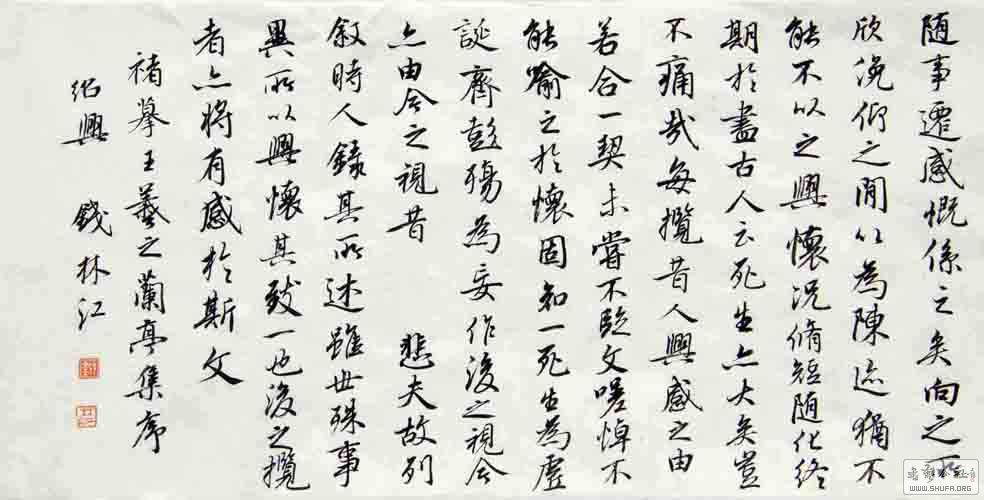 随事遷感慨係之矣向之所
欣俛仰之閒以為陳迹猶不
能不以之興懷况脩短随化終
期於盡古人云死生亦大矣豈
不痛哉每攬昔人興感之由
若合一契未嘗不臨文嗟悼不
能喻之於懷固知一死生為虛
誕齊彭殤為妄作後之視今
亦由今之視昔 悲夫故列
敘時人録其所述雖世殊事
異所以興懷其致一也後之攬
者亦将有感於斯文
褚摹王羲之蘭亭集序
紹興 錢林江
WWW.SHUFA.ORG